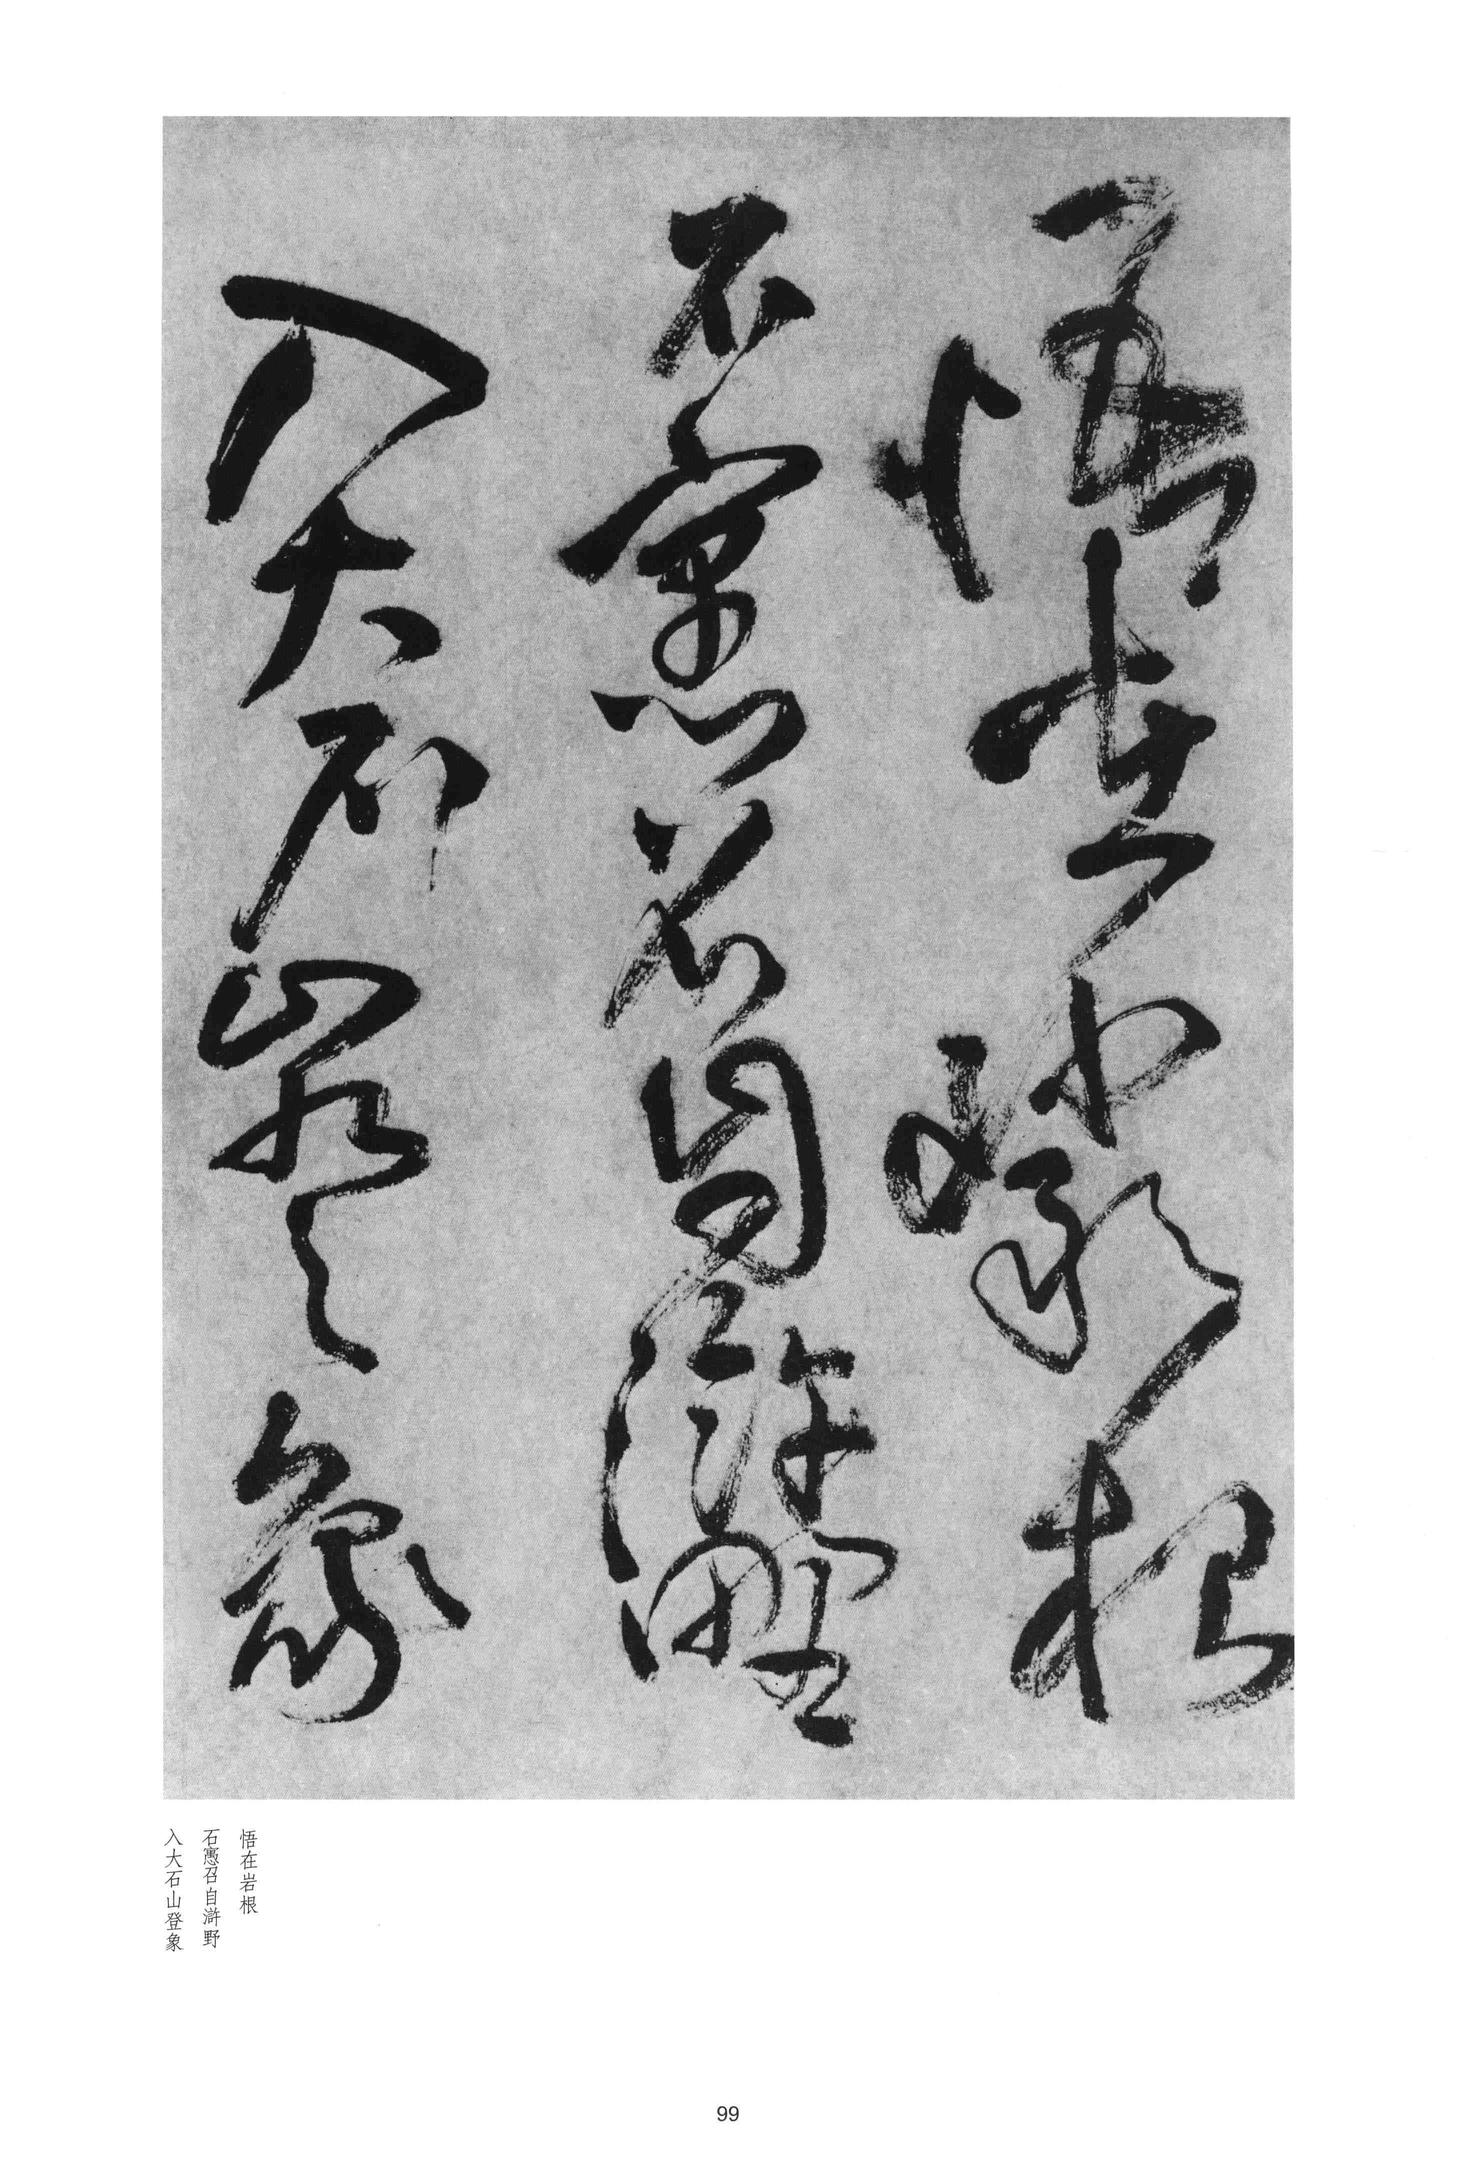 悟在岩根
石召自滸野
入大石山登象
悟在岩根
石召自滸野
入大石山登象
99